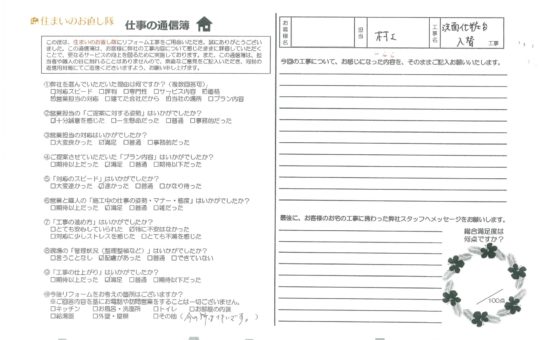 住まいのお直し隊 仕事の通信簿
この度は、住まいのお直し隊にリフォーム工事をご用命いただき、誠にありがとうござい
ました。この通信簿は、お客様に弊社の工事内容について感じたままに評価していただく
ことで、更なるサービスの向上を図るために実施しております。
①弊社を選んでいただいた理由は何ですか?(複数回答可)
□対応スピード □評判 □専門性 □サービス内容 ☑価格
☑営業担当の対応 □建てた会社だから □担当の場所 □プラン内容
②営業担当の「ご提案に対する姿勢」はいかがでしたか?
☑十分誠意を感じた □一生懸命だった □普通 □事務的だった
③営業担当の対応はいかがでしたか?
□大変良かった ☑満足 □普通 □事務的だった
④ご提案させていただいた「プラン内容」はいかがでしたか?
□期待以上だった ☑満足 □普通 □期待以下だった
⑤「対応のスピード」はいかがでしたか?
□大変速かった ☑速かった □普通 □かなり待った
⑥営業と職人の「施工中の仕事の姿勢・マナー・態度」はいかがでしたか?
□期待以上だった ☑満足 □普通 □雑だった
⑦「工事の進め方」はいかがでしたか?
□とても安心していられた ☑特に不安はなかった
□対応に少しストレスを感じた □とても不満を感じた
⑧現場の「管理状況(整理整頓など)」はいかがでしたか?
□言うことなし ☑配慮があった □普通 □できていない
⑨「工事の仕上がり」はいかがでしたか?
□期待以上だった ☑満足 □普通 □期待以下だった
⑩今後リフォームをお考えの箇所はございますか?
※ご回答の旨を基にお電話や訪問営業をすることは一切ございません。
□キッチン □お風呂・洗面所 □トイレ □お部屋の内装
□給湯器 □外壁・屋根 □その他
お客様名 担当 村上 工事名 洗面化粧台 入替 工事
今回の工事について、お感じになった内容を、そのままご記入お願いいたします。
最後に、お客様のお宅の工事に携わった弊社スタッフへメッセージをお願いします。
総合満足度は
何点ですか?
/100点